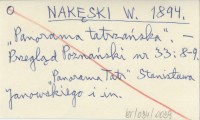 NAKĘSKI W. 1894.
"Panorama tatrzańska". —
Przegląd Poznański nr 33: 8-9.
"Panorama Tatr" Stanisława
Janowskiego i in.